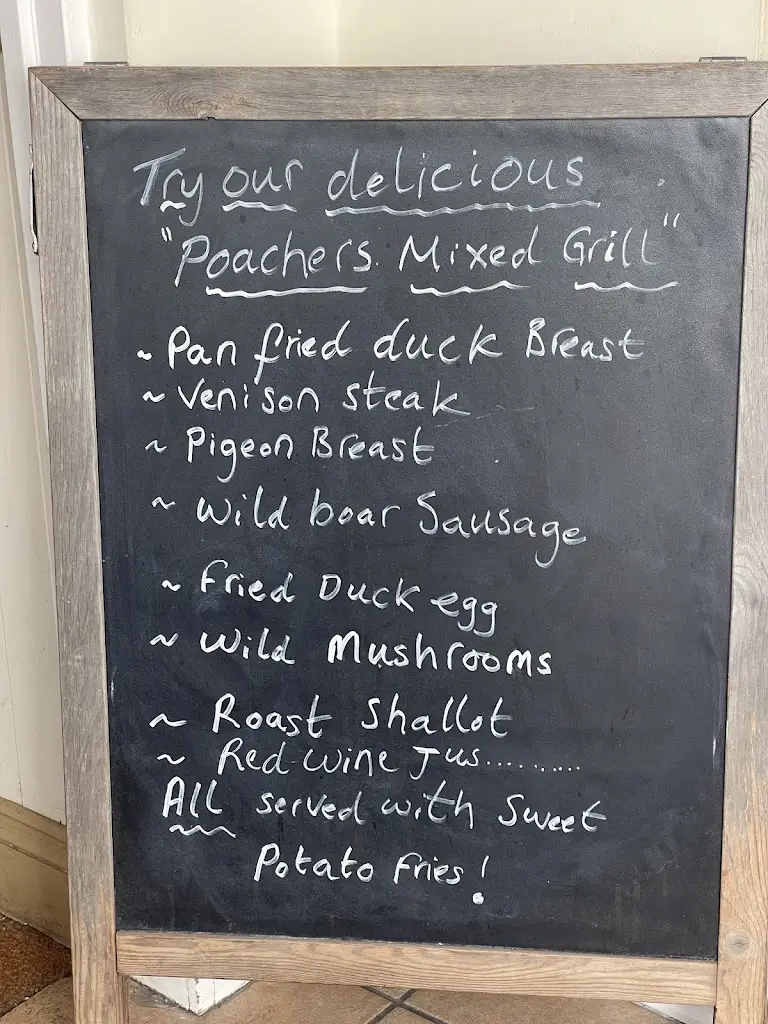 Try our delicious
"Poachers Mixed Grill"
~ Pan fried duck Breast
~ Venison steak
~ Pigeon Breast
~ Wild boar Sausage
~ Fried Duck egg
~ Wild Mushrooms
~ Roast Shallot
~ Red wine Jus.........
All served with Sweet
Potato fries!